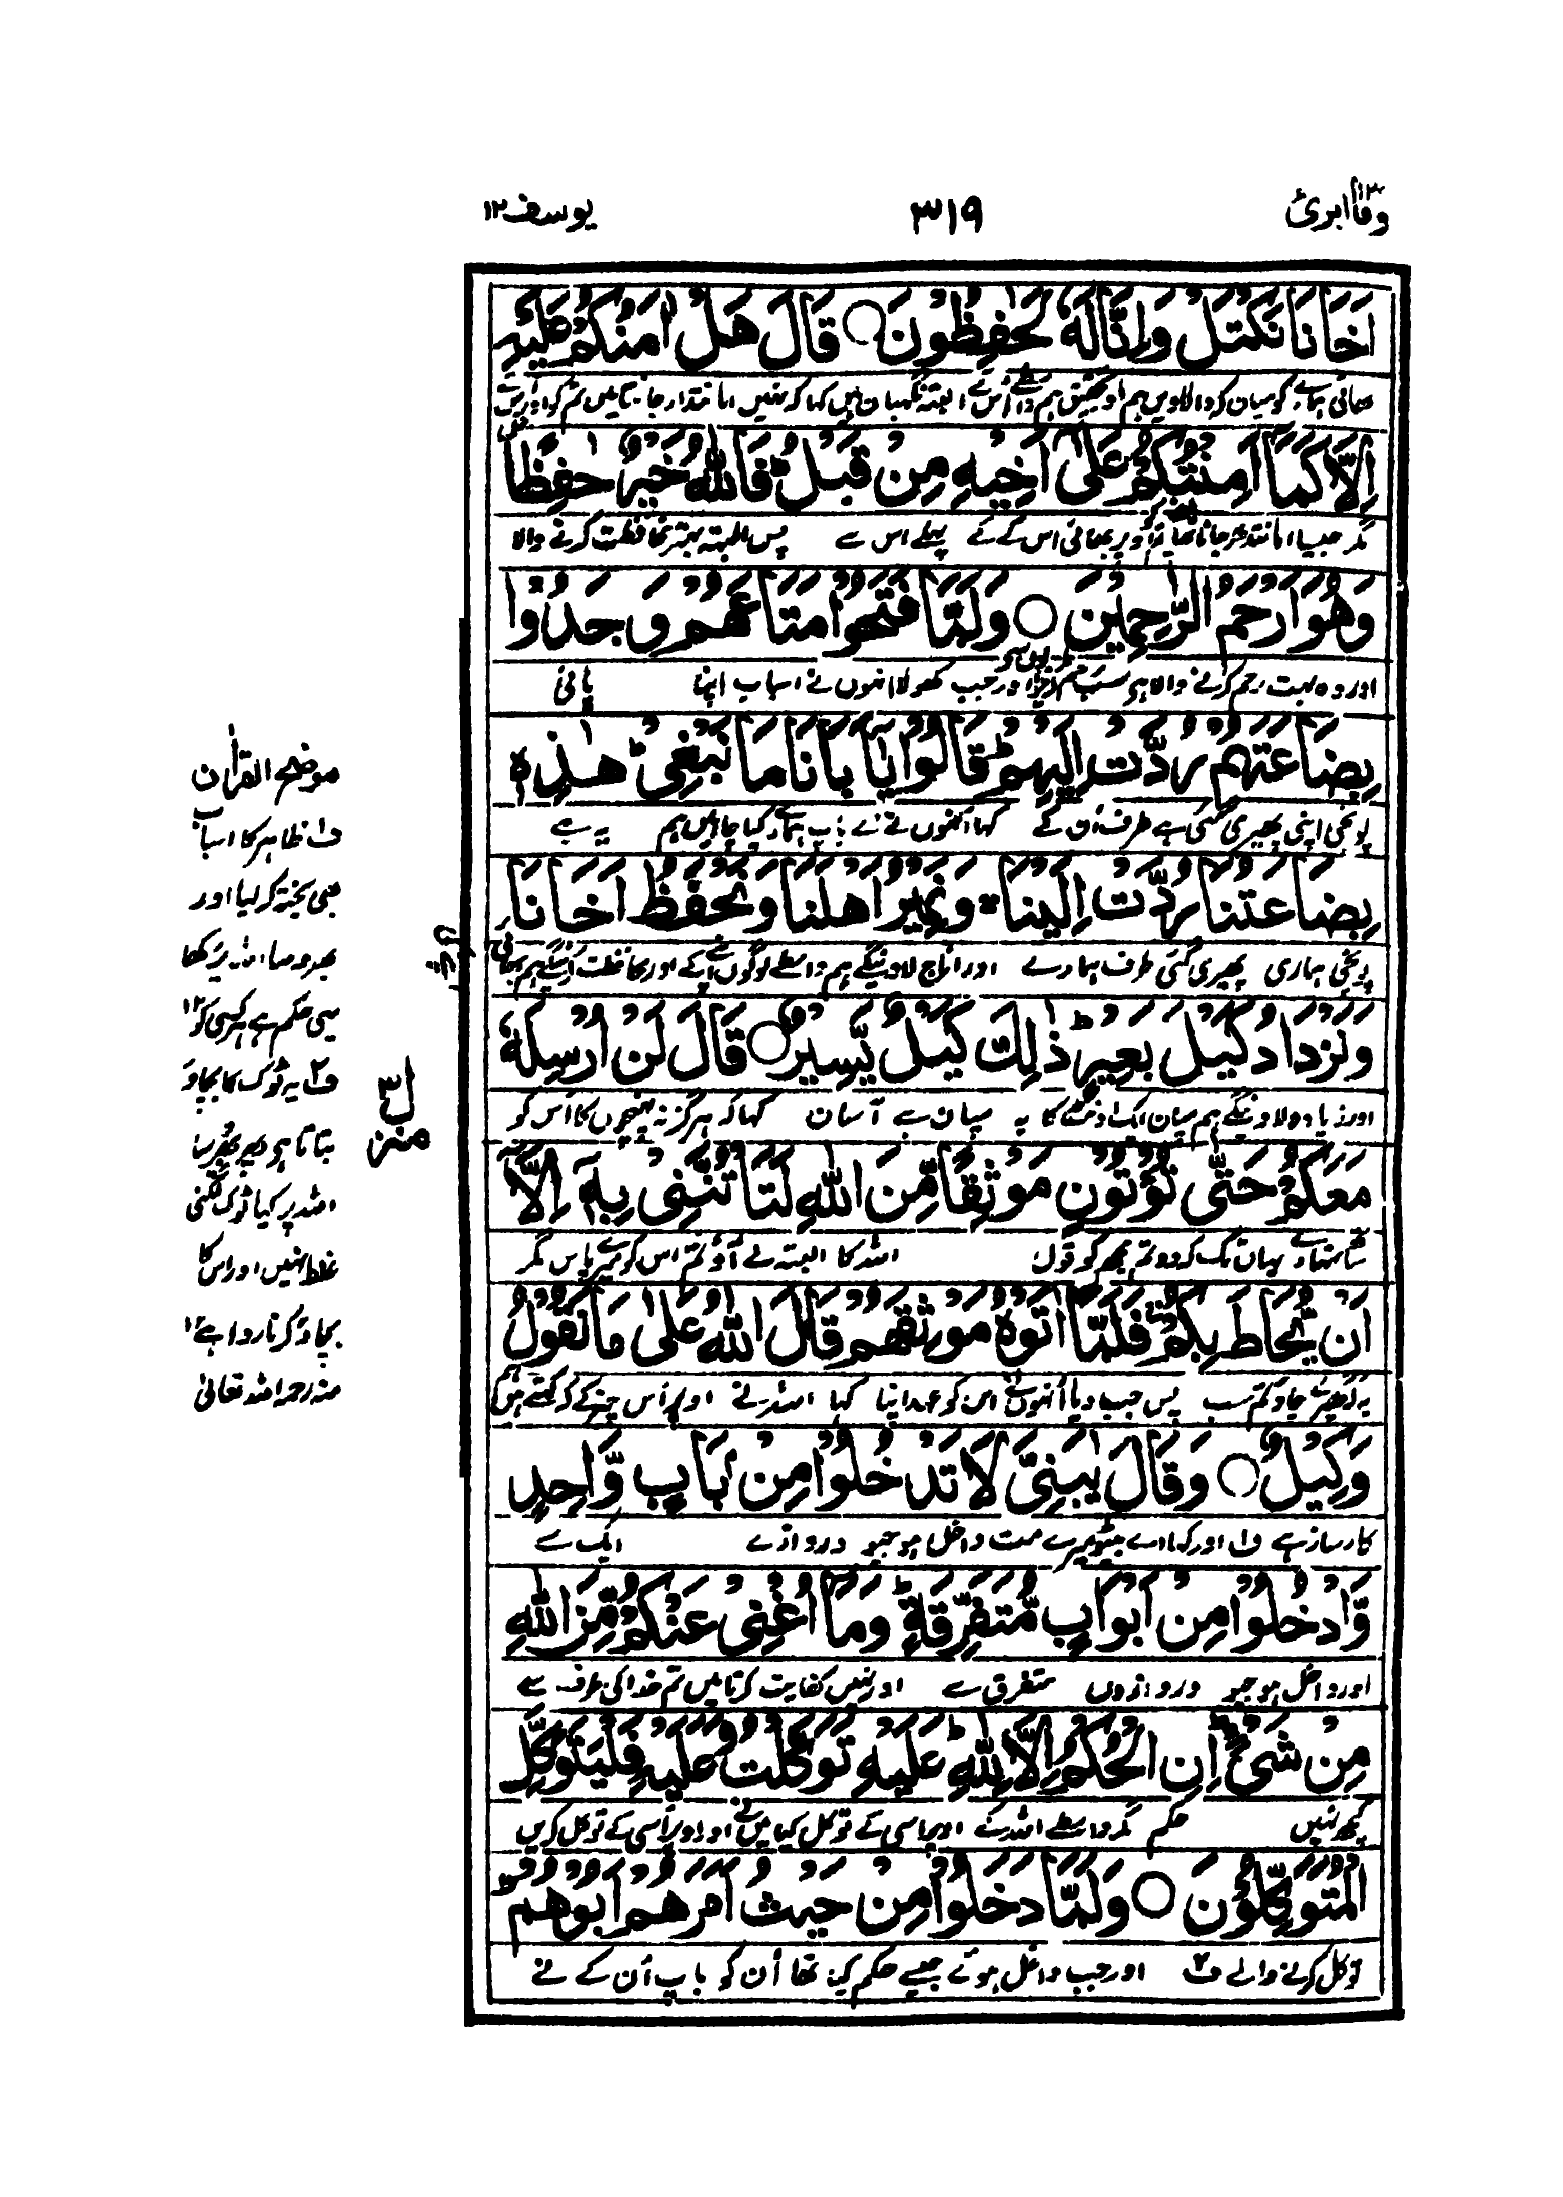 وما ابرئ ۱۳
۳۱۹
یوسف ۱۲
اَخَانَا نَكْتَلْ وَاِنَّا لَهٗ لَحٰفِظُوْنَ ○ قَالَ هَلْ اٰمَنُكُمْ عَلَيْهِ
بھائی ہمارے کو میان کر والاویں ہم اور تحقیق ہم واسطے اُس کے البتہ نگہبان ہیں کہا کہ نہیں امانتدار جانتا میں تم کو اوپر اس کے
اِلَّا كَمَآ اَمِنْتُكُمْ عَلٰٓى اَخِيْهِ مِنْ قَبْلُ ؕ فَاللّٰهُ خَيْرٌ حٰفِظًا
مگر جیسا امانتدار جانا تھا اوپر بھائی اس کے کے پہلے اس سے پس اللہ بہتر محافظت کرنے والا
وَهُوَ اَرْحَمُ الرّٰحِمِيْنَ ○ وَلَمَّا فَتَحُوْا مَتَاعَهُمْ وَجَدُوْا
اور وہ بہت رحم کرنے والا ہے سب رحم کرنے والوں سے اور جب کھولا انہوں نے اسباب اپنا پائی
بِضَاعَتَهُمْ رُدَّتْ اِلَيْهِمْ ؕ قَالُوْا يٰٓاَبَانَا مَا نَبْغِيْ ؕ هٰذِهٖ
پونجی اپنی پھیری گئی ہے طرف اُن کے کہا انہوں نے اے باپ ہمارے کیا چاہیں ہم یہ ہے
بِضَاعَتُنَا رُدَّتْ اِلَيْنَا ۚ وَنَمِيْرُ اَهْلَنَا وَنَحْفَظُ اَخَانَا
پونجی ہماری پھیری گئی طرف ہمارے اور اناج لاوینگے ہم واسطے لوگوں اپنے کے اور محافظت کرینگے ہم بھائی
وَنَزْدَادُ كَيْلَ بَعِيْرٍ ؕ ذٰلِكَ كَيْلٌ يَّسِيْرٌ ○ قَالَ لَنْ اُرْسِلَهٗ
اور زیادہ لاوینگے ہم میان ایک اونٹ کا یہ میان ہے آسان کہا کہ ہرگز نہ بھیجوں گا اُس کو
مَعَكُمْ حَتّٰى تُؤْتُوْنِ مَوْثِقًا مِّنَ اللّٰهِ لَتَاْتُنَّنِيْ بِهٖٓ اِلَّآ
ساتھ تمہارے یہاں تک کہ دو تم مجھ کو قول اللہ کا البتہ لے آؤ تم اس کو میرے پاس مگر
اَنْ يُّحَاطَ بِكُمْ ۚ فَلَمَّآ اٰتَوْهُ مَوْثِقَهُمْ قَالَ اللّٰهُ عَلٰى مَا نَقُوْلُ
یہ کہ گھیرے جاؤ تم سب پس جب دیا اُنہوں نے اس کو عہد اپنا کہا اللہ نے اوپر اُس چیز کے کہ کہتے ہیں
وَكِيْلٌ ○ وَقَالَ يٰبَنِيَّ لَا تَدْخُلُوْا مِنْ بَابٍ وَّاحِدٍ
کارساز ہے ف۱ اور کہا اے بیٹو میرے مت داخل ہوجیو دروازے ایک سے
وَّادْخُلُوْا مِنْ اَبْوَابٍ مُّتَفَرِّقَةٍ ؕ وَمَآ اُغْنِيْ عَنْكُمْ مِّنَ اللّٰهِ
اور داخل ہوجیو دروازوں متفرق سے اور نہیں کفایت کرتا میں تم خدا کی طرف سے
مِنْ شَيْءٍ ؕ اِنِ الْحُكْمُ اِلَّا لِلّٰهِ ؕ عَلَيْهِ تَوَكَّلْتُ ۚ وَعَلَيْهِ فَلْيَتَوَكَّلِ
کچھ نہیں حکم مگر واسطے اللہ کے اوپر اسی کے توکل کیا میں نے اور اوپر اُسی کے توکل کریں
الْمُتَوَكِّلُوْنَ ○ وَلَمَّا دَخَلُوْا مِنْ حَيْثُ اَمَرَهُمْ اَبُوْهُمْ ؕ
توکل کرنے والے ف۲ اور جب داخل ہوئے جیسے حکم کیا تھا اُن کو باپ اُن کے نے
موضح القرآن
ف۱ ظاہر کا اسباب
بھی پختہ کر لیا اور
بھروسا اللہ پر رکھا
یہی حکم ہے ہر کسی کو ۱۲
ف۲ یہ ٹوک کا بچاؤ
بتا تا ہے پھر بھروسا
اللہ پر کیا ٹوک لگنی
غلط نہیں اور اس کا
بچاؤ کرنا روا ہے ۱۲
منہ رحمہ اللہ تعالیٰ
منزل ۳